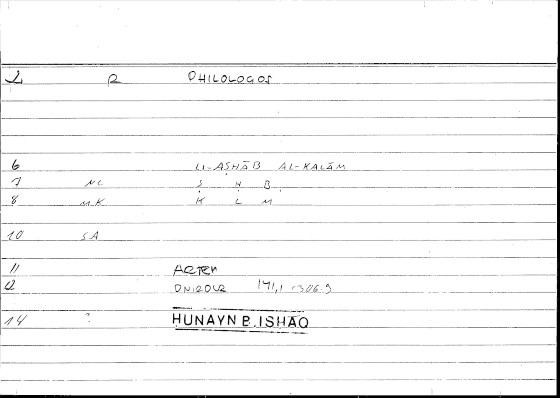 2 R PHILOLOGOS
6 LI-AṢḤĀB AL-KALĀM
7 NC Ṣ Ḥ B
8 MK K L M
10 SA
11 ARTEM
12 ONIROCR 141,1
14 ? ḤUNAYN B. ISḤĀQ